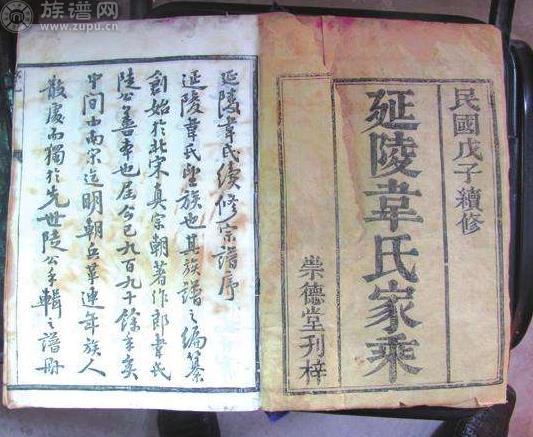 族谱网
www.zupu.cn
民國戊子續修
延陵韋氏家乘
崇德堂刊梓
延陵韋氏續修宗譜序
延陵韋氏望族也其族譜之編纂
創始於北宋真宗朝著作郎韋氏
陵公善本也屈今已九百九十餘年矣
中间由南宋迄明朝兵革連年族人
散處而獨於先世陵公手輯之譜冊